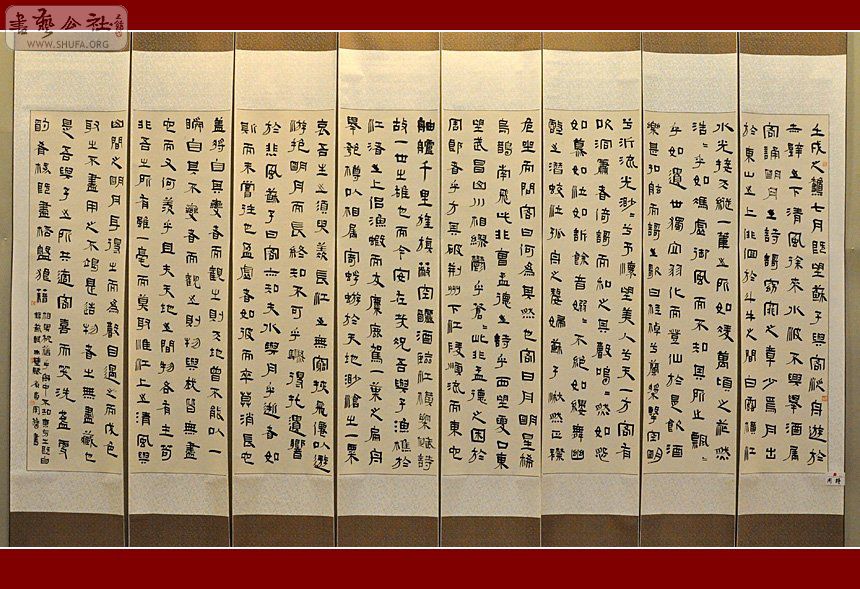 書藝公社
WWW.SHUFA.ORG
壬戌之秋七月既望蘇子與客泛舟遊於
赤壁之下清風徐來水波不興舉酒屬
客誦明月之詩歌窈窕之章少焉月出
於東山之上徘徊於斗牛之間白露橫江
水光接天縱一葦之所如凌萬頃之茫然
浩々乎如馮虛御風而不知其所止飄々
乎如遺世獨立羽化而登仙於是飲酒
樂甚扣舷而歌之歌曰桂棹兮蘭槳擊空明
兮泝流光渺々兮予懷望美人兮天一方客有
吹洞簫者倚歌而和之其聲嗚々然如怨
如慕如泣如訴餘音嫋々不絕如縷舞幽
壑之潛蛟泣孤舟之嫠婦蘇子愀然正襟
危坐而問客曰何為其然也客曰月明星稀
烏鵲南飛此非曹孟德之詩乎西望夏口東
望武昌山川相繆鬱乎蒼々此非孟德之困於
周郎者乎方其破荊州下江陵順流而東也
舳艫千里旌旗蔽空釃酒臨江橫槊賦詩
故一世之雄也而今安在哉況吾與子漁樵於
江渚之上侶魚蝦而友麋鹿駕一葉之扁舟
舉匏樽以相屬寄蜉蝣於天地渺滄海之一粟
哀吾生之須臾羨長江之無窮挾飛僊以遨
遊抱明月而長終知不可乎驟得托遺響
於悲風蘇子曰客亦知夫水與月乎逝者如
斯而未嘗往也盈虛者如彼而卒莫消長也
蓋將自其變者而觀之則天地曾不能以一
瞬自其不變者而觀之則物與我皆無盡
也而又何羨乎且夫天地之間物各有主苟
非吾之所有雖一毫而莫取惟江上之清風與
山間之明月耳得之而為聲目遇之而成色
取之不盡用之不竭是造物者之無盡藏也
是吾與子之所共適客喜而笑洗盞更
酌肴核既盡杯盤狼藉
相與枕藉乎舟中不知東方之既白